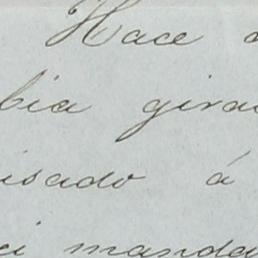 Hace
bia gira
isado á
i manda